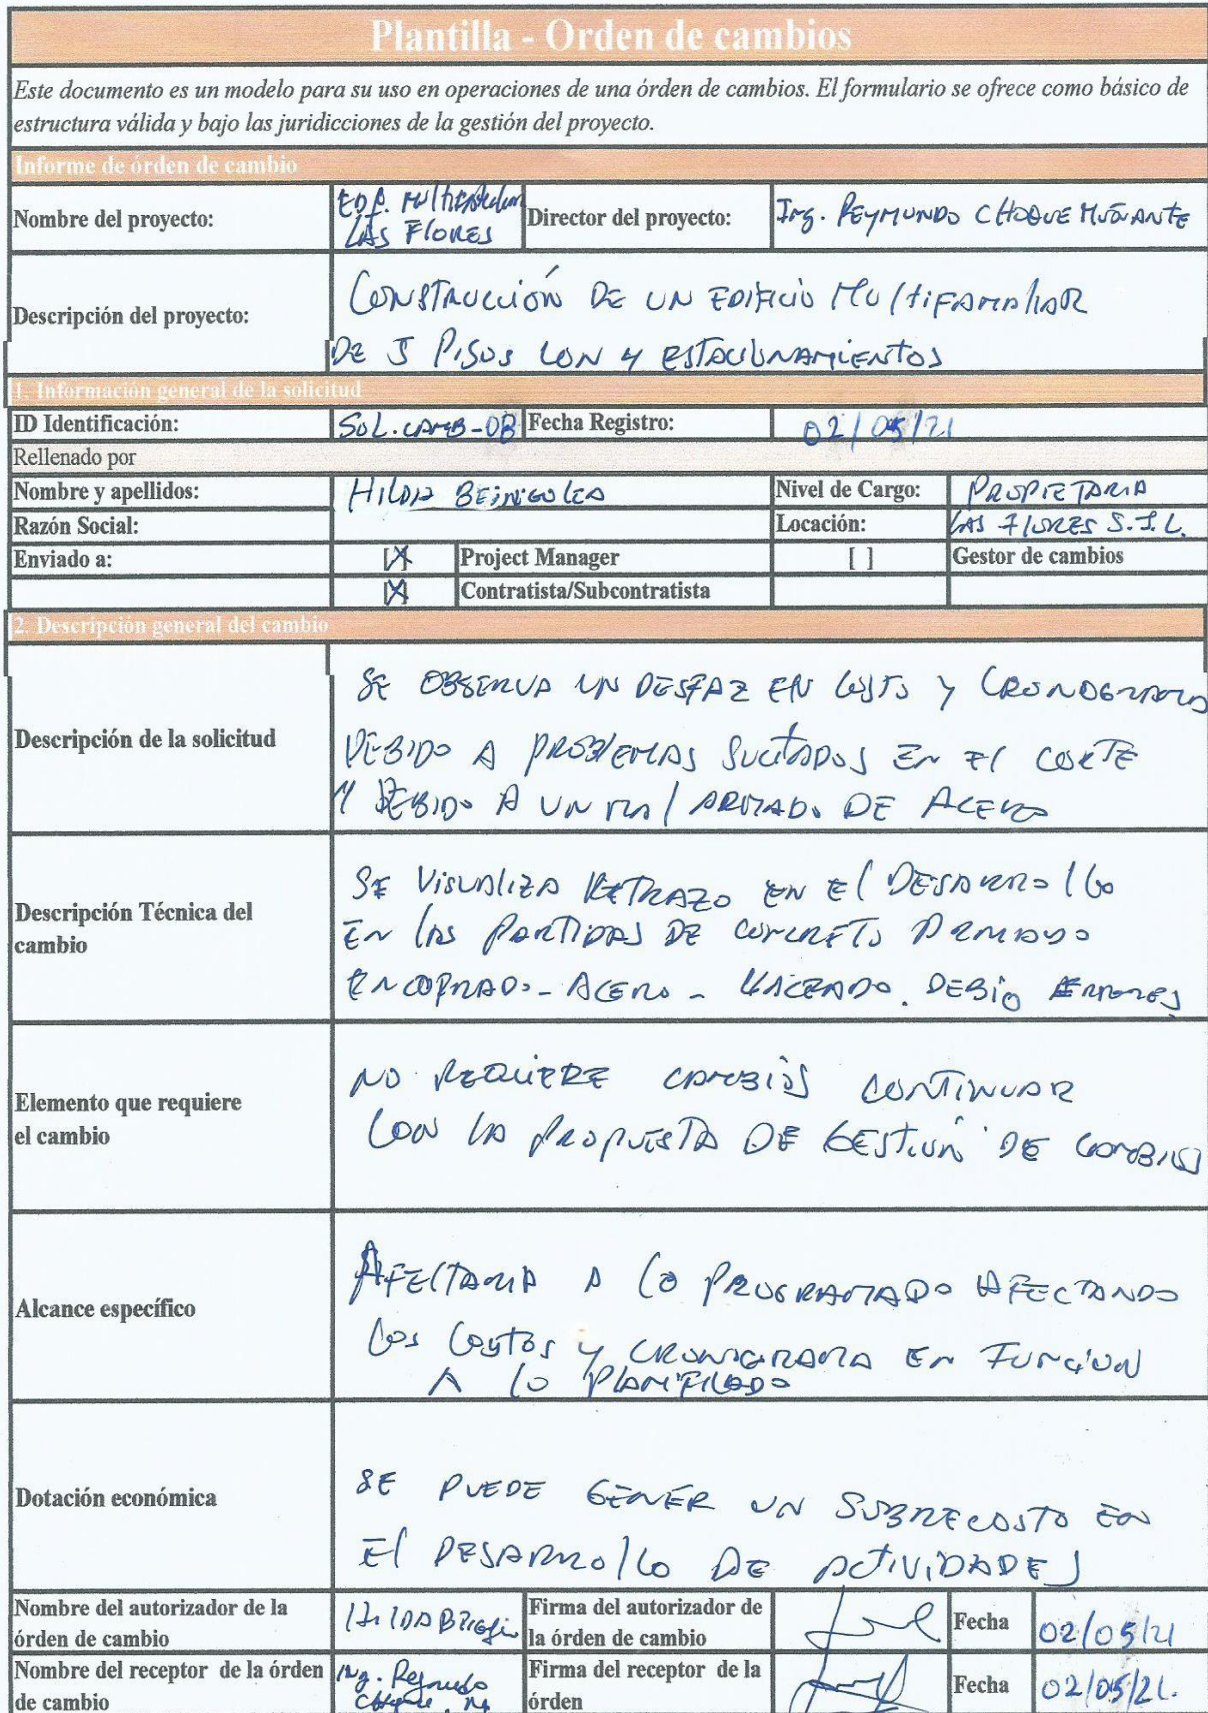 Plantilla - Orden de cambios
Este documento es un modelo para su uso en operaciones de una órden de cambios. El formulario se ofrece como básico de
estructura válida y bajo las juridicciones de la gestión del proyecto.
Informe de órden de cambio
Nombre del proyecto:
LAS FLORES
Director del proyecto:
Ing. REYMUNDO CHOQUE MUÑANTE
Descripción del proyecto:
CONSTRUCCIÓN DE UN EDIFICIO MULTIFAMILIAR
DE 5 PISOS CON 4 ESTACIONAMIENTOS
1. Información general de la solicitud
ID Identificación:
SOL.CAMB-
Fecha Registro:
02/05/21
Rellenado por
Nombre y apellidos:
HILDA BEINGOLEA
Nivel de Cargo:
PROPIETARIA
Razón Social:
Locación:
LAS FLORES S.J.L.
Enviado a:
[X]
Project Manager
[ ]
Gestor de cambios
[X]
Contratista/Subcontratista
2. Descripción general del cambio
Descripción de la solicitud
SE OBSERVA UN DESFAZ EN COSTO Y CRONOGRAMA
DEBIDO A PROBLEMAS SUCITADOS EN EL CORTE
Y DEBIDO A UN MAL ARMADO DE ACERO
Descripción Técnica del
cambio
SE VISUALIZA RETRAZO EN EL DESARROLLO
EN LAS PARTIDAS DE CONCRETO ARMADO
ENCOFRADO - ACERO - VACEADO. DEBIO ERRORES
Elemento que requiere
el cambio
NO REQUIERE CAMBIOS CONTINUAR
CON LA PROPUESTA DE GESTIÓN DE CAMBIOS
Alcance específico
AFECTARIA A LO PROGRAMADO AFECTANDO
LOS COSTOS Y CRONOGRAMA EN FUNCION
A LO PLANIFICADO
Dotación económica
SE PUEDE GENER UN SOBRECOSTO EN
EL DESARROLLO DE ACTIVIDADES
Nombre del autorizador de la
órden de cambio
HILDA
Firma del autorizador de
la órden de cambio
Fecha
02/05/21
Nombre del receptor de la órden
de cambio
Ing. Reymundo
Choque
Firma del receptor de la
órden
Fecha
02/05/21.